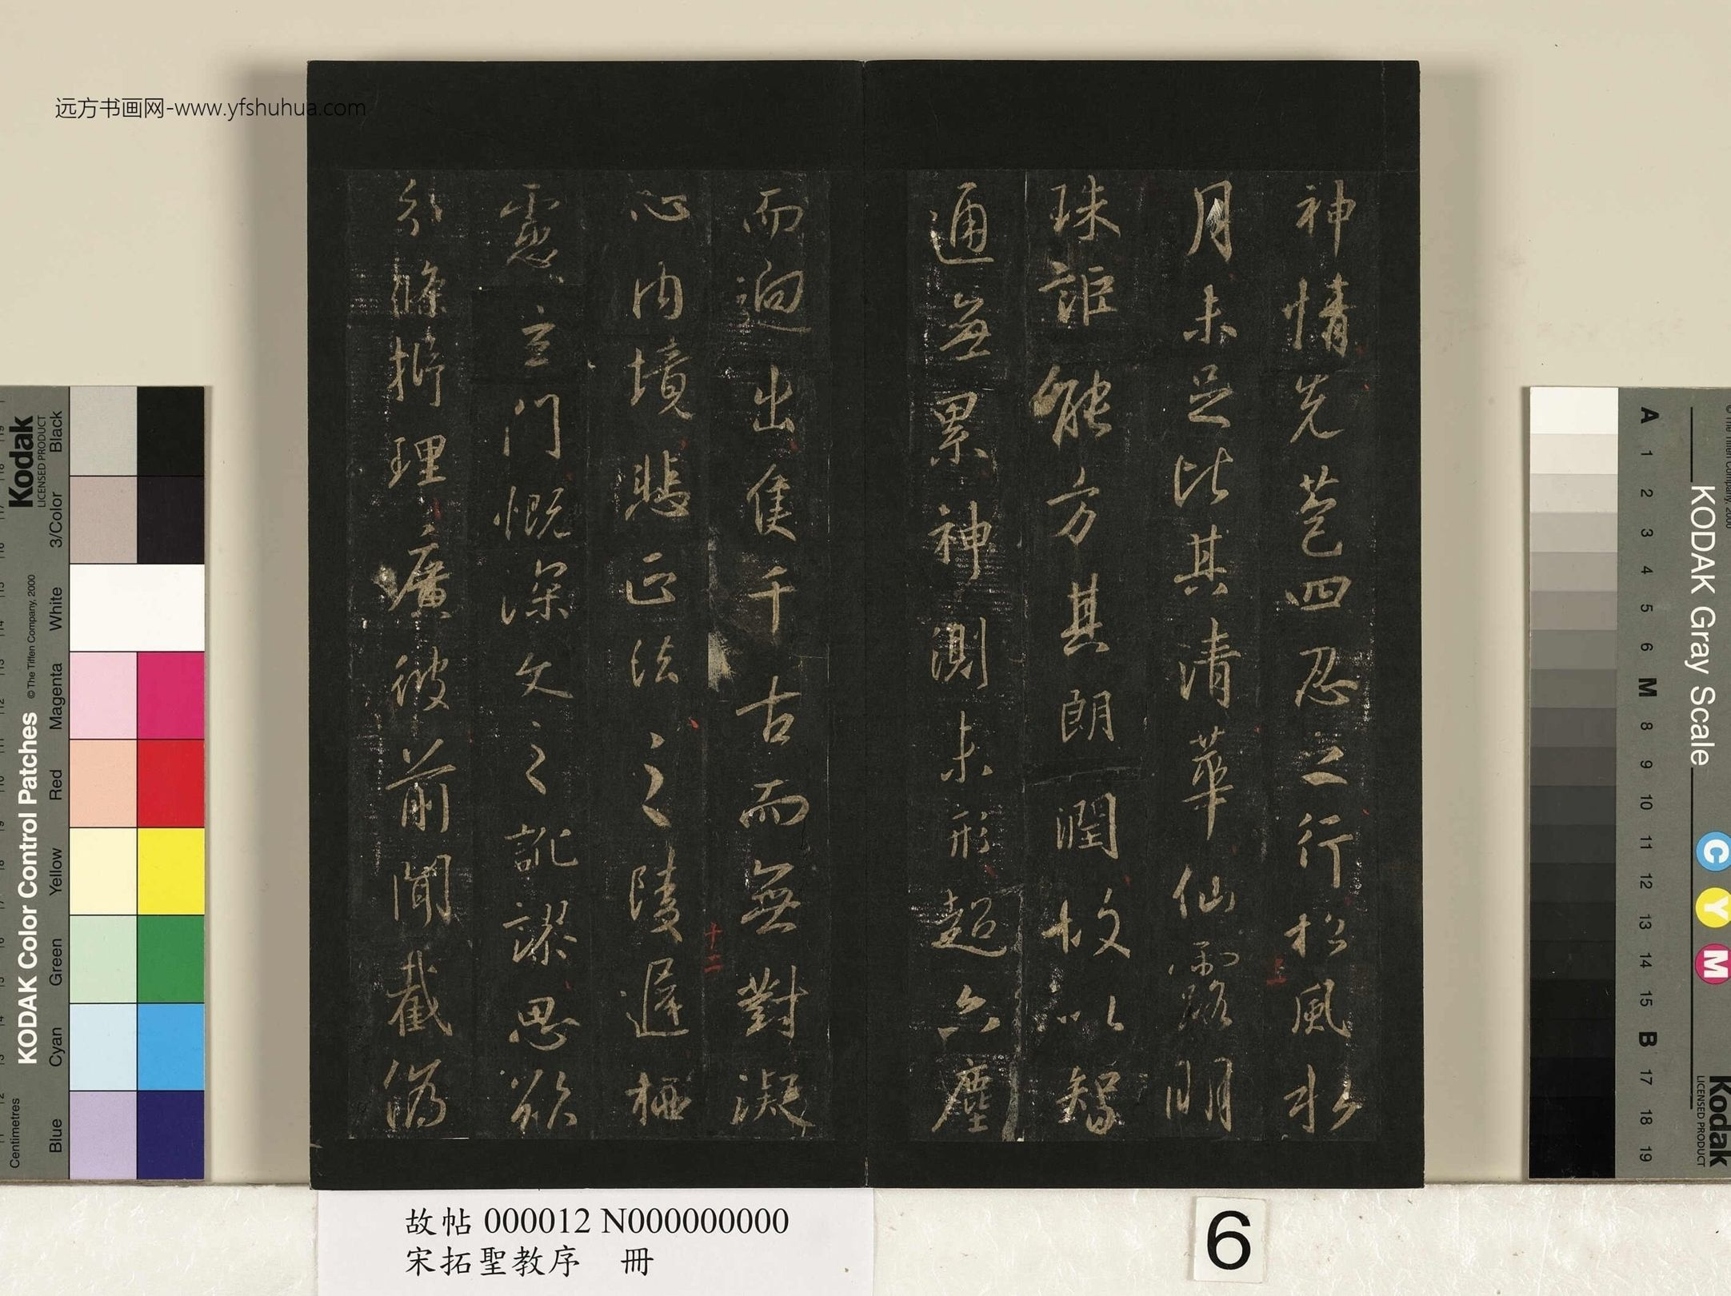 远方书画网-www.yfshuhua.com
神情先苞四忍之行松風水
月未足比其清華仙露明
珠詎能方其朗潤故以智
通無累神測未形超六塵
而迥出隻千古而無對凝
心內境悲正法之陵遲栖
慮玄門慨深文之訛謬思欲
分條析理廣彼前聞截偽
十二
故帖 000012 N000000000
宋拓聖教序 冊
6
Kodak
LICENSED PRODUCT
KODAK Color Control Patches
© The Tiffen Company, 2000
Centimetres
Black
3/Color
White
Magenta
Red
Yellow
Green
Cyan
Blue
KODAK Gray Scale
A
1
2
3
4
5
6
M
8
9
10
11
12
13
14
15
B
17
18
19
C
Y
M
Kodak
LICENSED PRODUCT